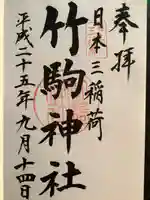 奉拝
日本三稲荷
竹駒神社
平成二十五年九月十四日